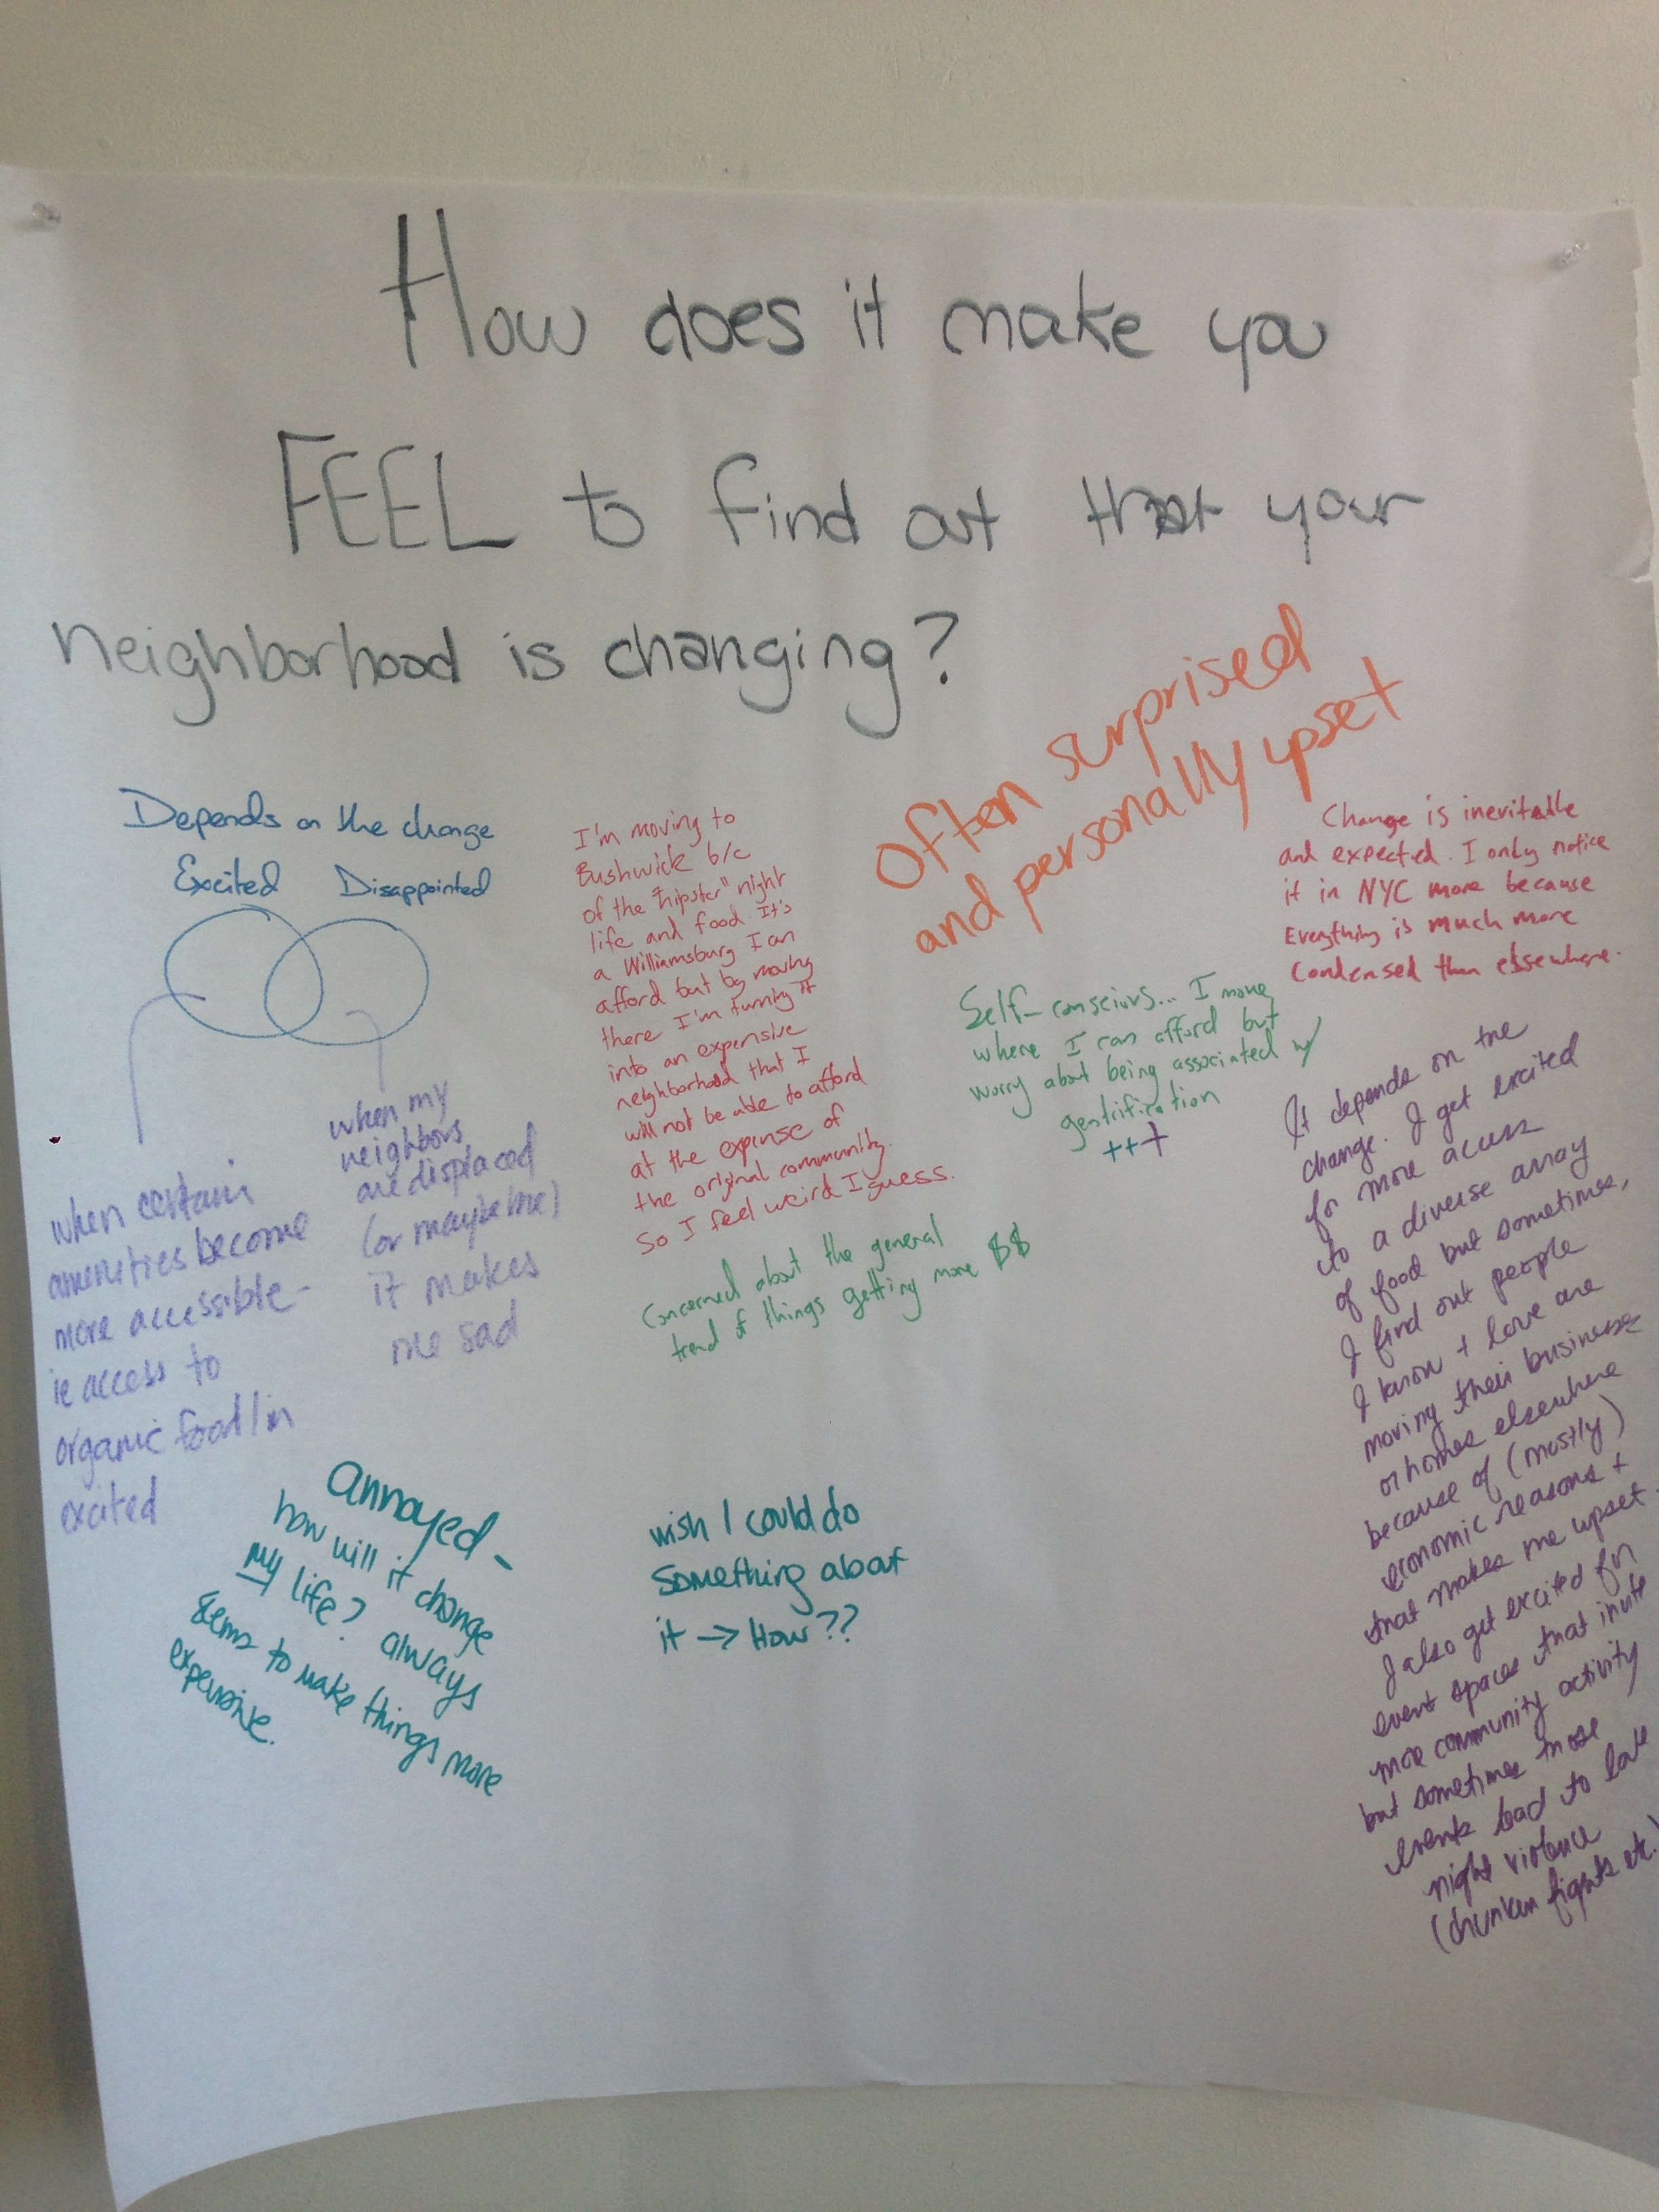 How does it make you
FEEL to find out that your
neighborhood is changing?
Depends on the change
Excited Disappointed
when certain
amenities become
more accessible -
ie access to
organic food I'm
excited
when my
neighbors
are displaced
(or maybe me)
it makes
me sad
I'm moving to
Bushwick b/c
of the "hipster" night
life and food. It's
a Williamsburg I can
afford but by moving
there I'm turning it
into an expensive
neighborhood that I
will not be able to afford
at the expense of
the original community.
So I feel weird I guess.
Often surprised
and personally upset
Change is inevitable
and expected. I only notice
it in NYC more because
Everything is much more
Condensed than elsewhere.
Self-conscious... I move
where I can afford but
worry about being associated w/
gentrification
+++
Concerned about the general
trend of things getting more $$
It depends on the
change. I get excited
for more access
to a diverse array
of food but sometimes,
I find out people
I know + love are
moving their business
or homes elsewhere
because of (mostly)
economic reasons +
that makes me upset.
I also get excited for
event spaces that invite
more community activity
but sometimes those
events lead to late
night violence
(drunken fights etc.)
annoyed -
how will it change
my life? always
seems to make things more
expensive.
wish I could do
something about
it → How??